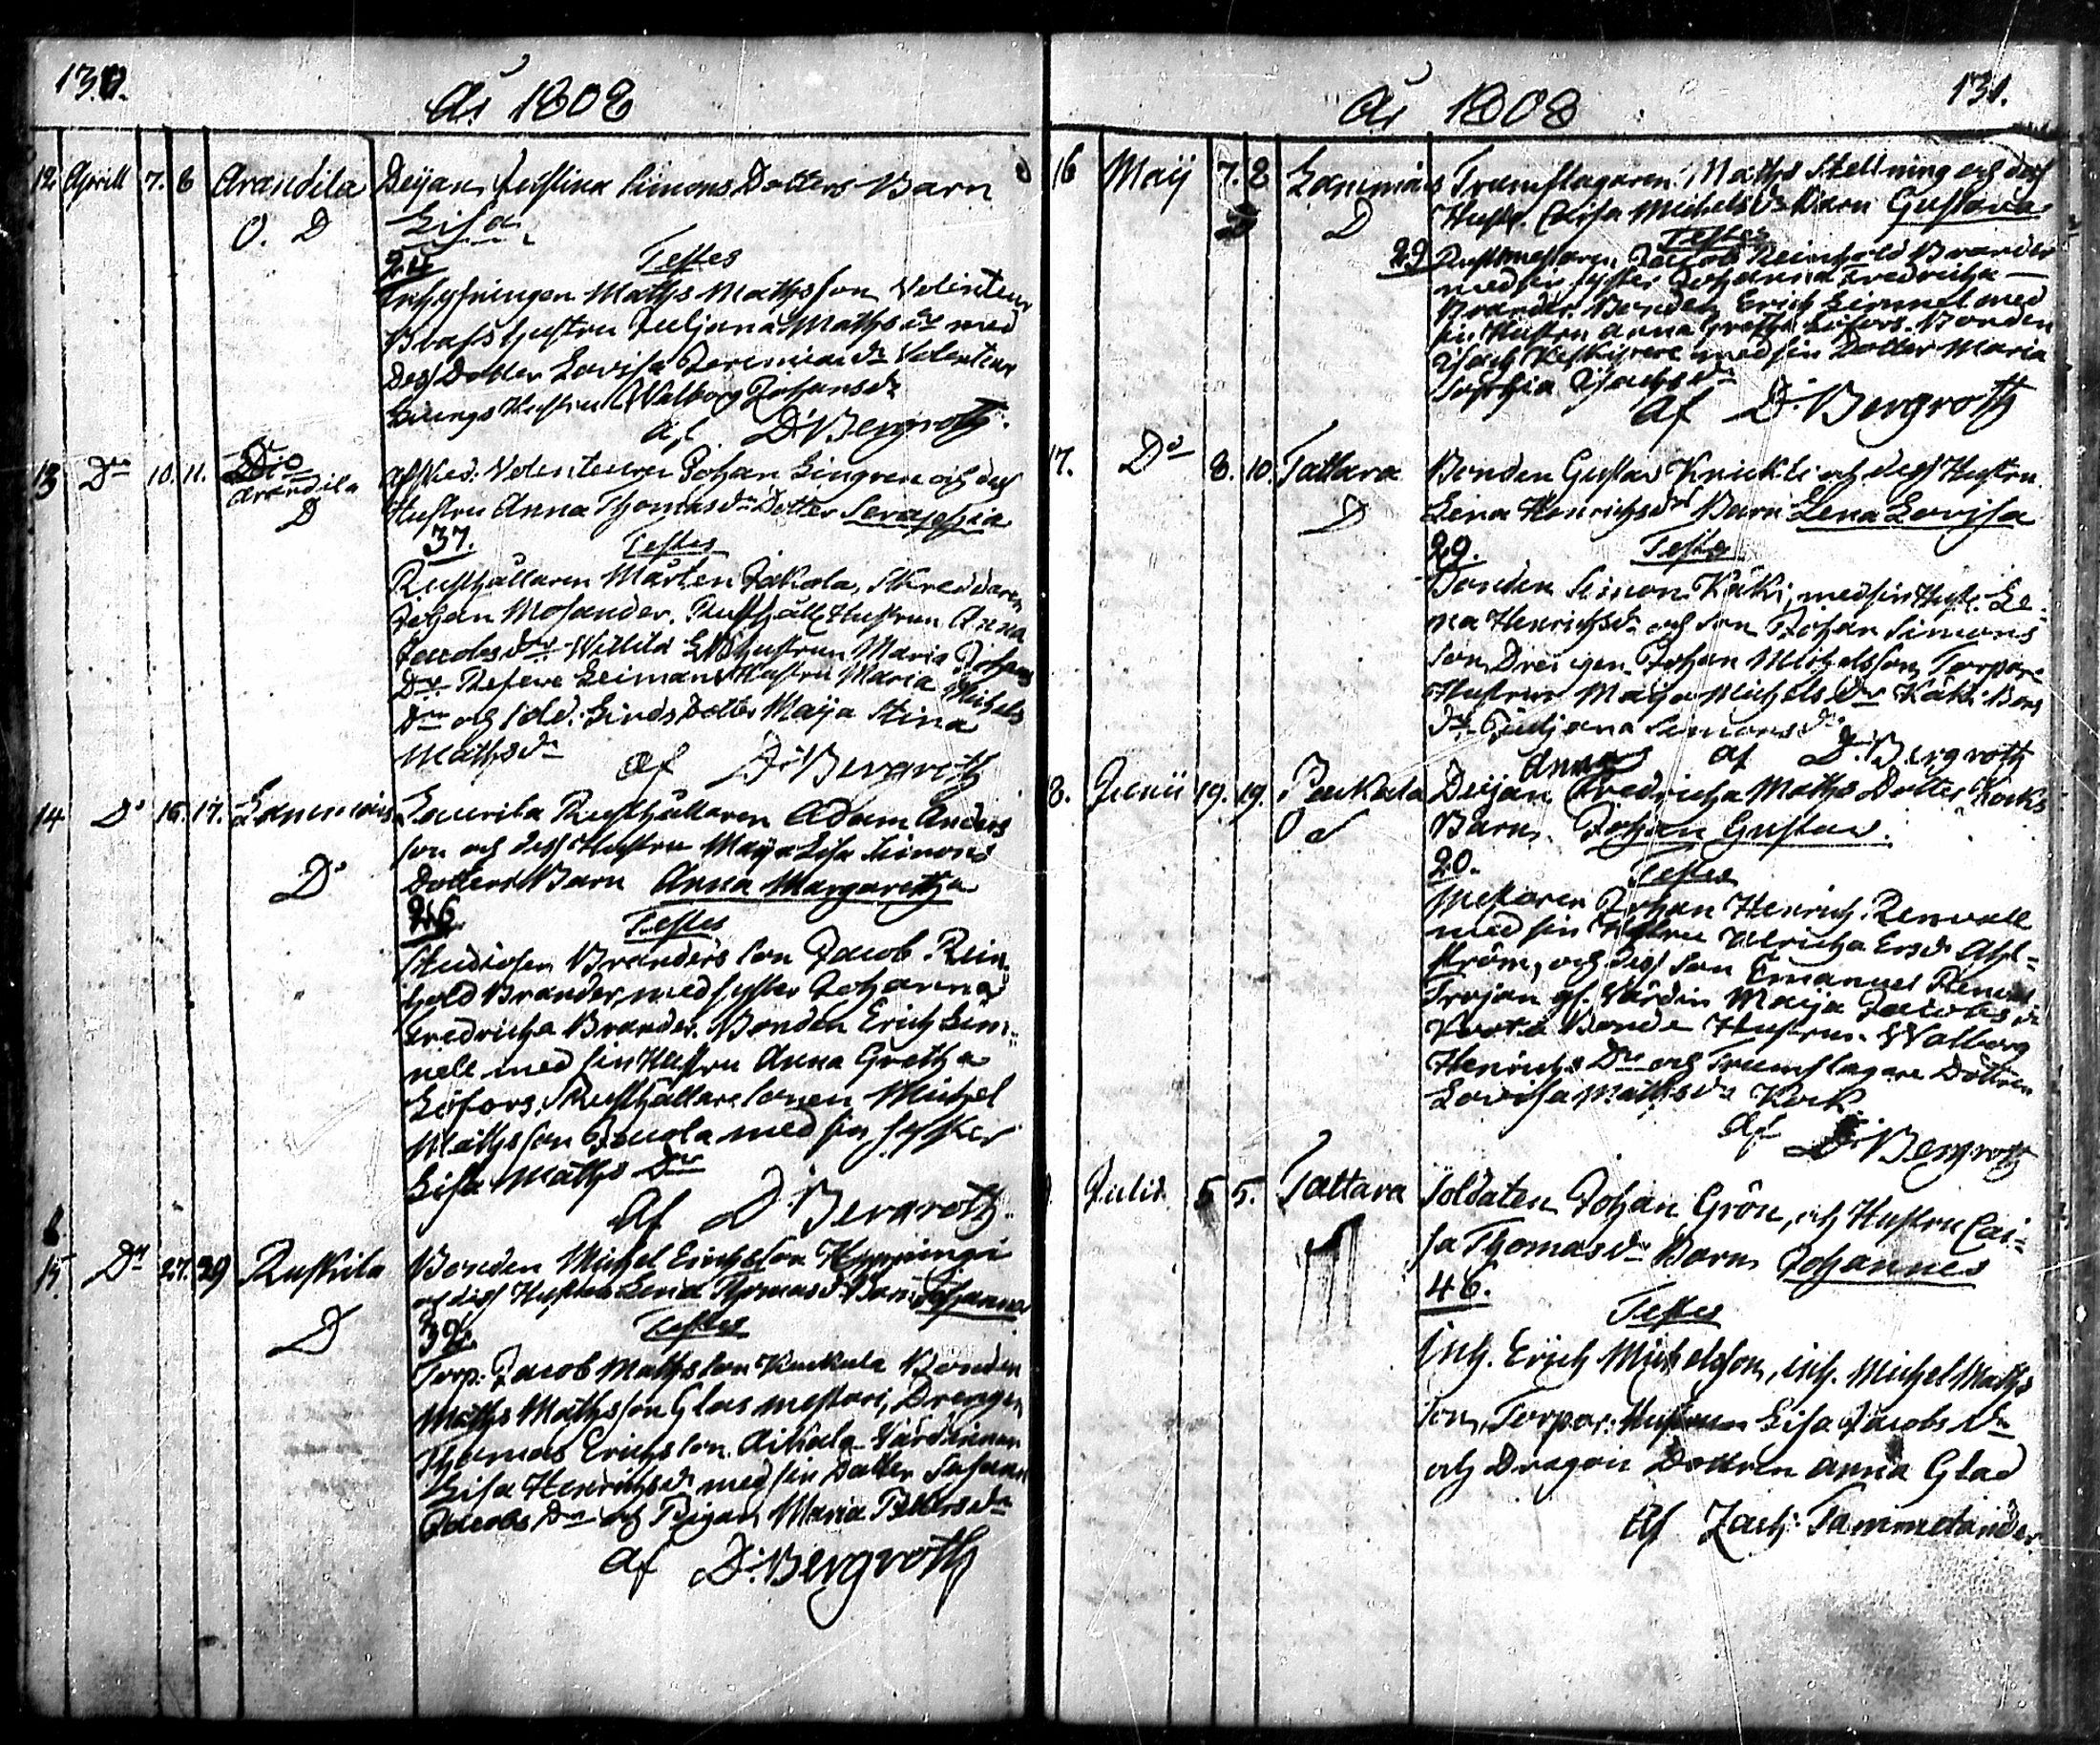 130.
År 1808
12. Aprill 7. 8 Arandila Deijan Christina Simons Dotters Barn
O. D Lisa
24 Testes
Inhysingen Mathts Mathsson Volinteur
Brafs Hustru Juljana Mathsdr med
Dess Dotter Lovisa Jeremiædr Volenteur
Hustru Walborg Johansdr
af D: Bergroth.
13 Do 10. 11. Dio Afsked: Volenteuren Johan Lingren och dess
Arandila Hustru Anna Thomasdr Dotter Seraphia
D 37. Testes
Rusthållaren Mårten Jakola, Skreddaren
Johan Mosander. Rusthåll Hustrun Anna
Jacobsdr Hustrun Maria Johans
Dr Leimans Hustru Maria Michels
Dr och Sold: Linds Dotter Maija Stina
Mathsdr af D: Bergroth
14 Do 16. 17. Lammais Rusthållaren Adam Anders
son och dess Hustru Maija Lisa Simons
D Dotters Barn Anna Margaretha
26 Testes
Studiosen Branders son Jacob Rein
hold Brander, med syster Johanna
Fredricha Brander. Bonden Erich Lim
nell med sin Hustru Anna Gretha
Löfors. Rusthållare sonen Michel
Mathsson med sin syster
Lisa Maths Dr
af D: Bergroth.
15 Do 27. 29 Ruskila Bonden Michel Erichsson Hyppingi
och dess Hustru Lena Thomasdr Barn Johanna
D 32. Testes
Torp: Jacob Mathsson Kuckula Bonden
Maths Mathsson Glasmestari, Drengen
Thomas Erichsson. Aikala Värdinnan
Lisa Henrichsdr med sin Dotter Susanna
Jacobs Dr och Pigan Maria Pettersdr
af D: Bergroth
131.
År 1808
16 Maij 7. 8 Lammais Trumslagaren Maths Stellning och dess
D Hustr. Caisa Michelsdr Barn Gustava
29 Testes
Jacob Reinhold Brander
med sin syster Johanna Fredricha
Brander. Bonden Erich Limnel med
sin Hustru Anna Gretha Löfors. Bonden
Isach med sin Dotter Maria
Sophia Isachsdr
af D: Bergroth
17. Do 8. 10. Tattara Bonden Gustav Krickti och dess Hustru
D Lena Henrichsdr Barn Lena Lovisa
29. Testes
Bonden Simon Käki, med sin Hustr. Le-
na Henrichsdr och son Johan Simons
son, Drengen Johan Michelsson, Torpare
Hustrun Maija Michels Dr Käki Bonde
Dr Juljana Simonsdr
af D: Bergroth
8. Junii 19. 19. Paukala Deijan Anna Fredricha Maths Dotter Kocks
O d Barn. Johan Gustav.
20. Testes
Mestaren Johan Henrich Renvall
med sin Hustru Ulricha Ersdr Ahl-
ström, och dess son Emanuel Renvall
Trojan gl. Värdin Maija Jacobsdr
Bonde Hustrun Walborg
Henrichs Dr och Trumslagare Dottren
Lovisa Mathsdr Kock
af D: Bergroth
Julii 5 5. Tattara Soldaten Johan Grön, och Hustru Cai-
sa Thomasdr Barn Johannes
46. Testes
Inh. Erich Michelsson, inh. Michel Maths
son, Torpar: Hustrun Lisa Jacobs Dr
och Dragon Dottren Anna Glad
af Zach: Tammelander